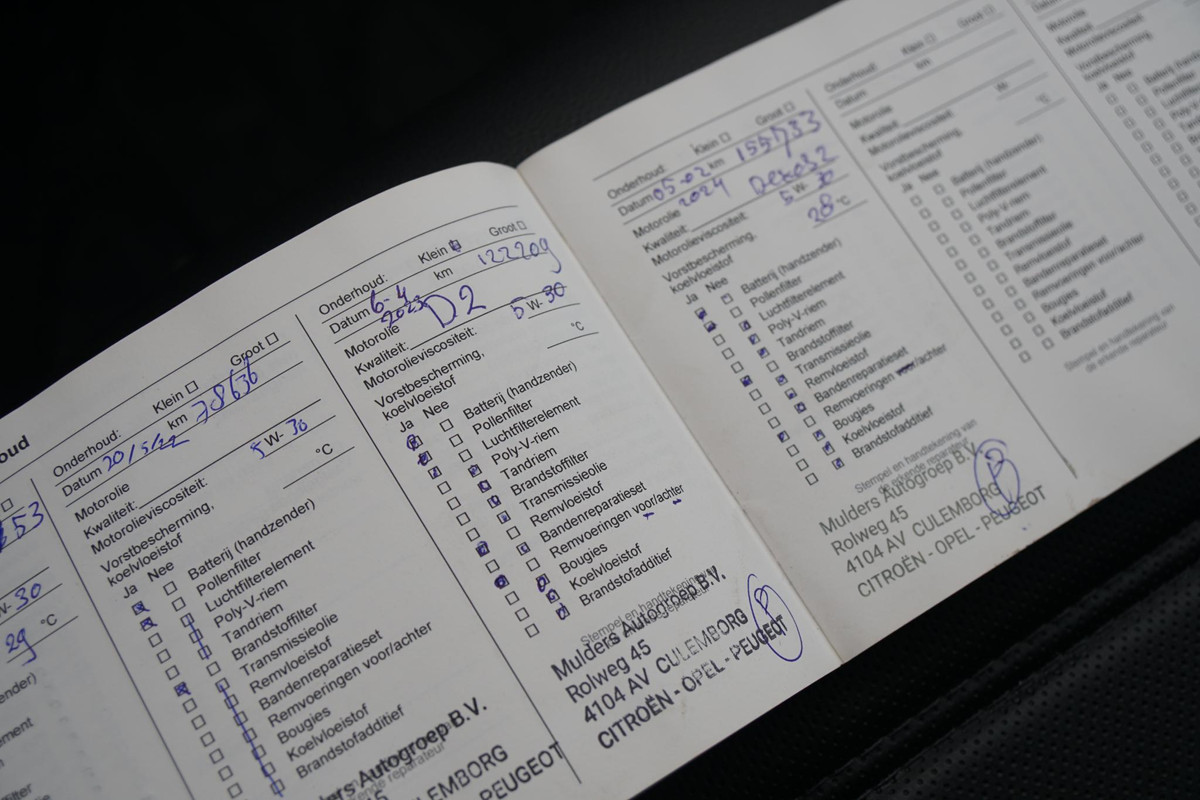 oud
653
W- 30
29 °C
ender)
ement
Onderhoud: Klein Groot
Datum 20/5/22 km 78636
Motorolie
Kwaliteit:
Motorolieviscositeit: 5 W- 30
Vorstbescherming,
koelvloeistof °C
Ja Nee
Batterij (handzender)
Pollenfilter
Luchtfilterelement
Poly-V-riem
Tandriem
Brandstoffilter
Transmissieolie
Remvloeistof
Bandenreparatieset
Remvoeringen voor/achter
Bougies
Koelvloeistof
Brandstofadditief
ders Autogroep B.V.
ende reparateur
45
LEMBORG
PEUGEOT
Onderhoud: Klein Groot
Datum 6-4 2023 km 122209
Motorolie
Kwaliteit: D2
Motorolieviscositeit: 5 W- 30
Vorstbescherming,
koelvloeistof °C
Ja Nee
Batterij (handzender)
Pollenfilter
Luchtfilterelement
Poly-V-riem
Tandriem
Brandstoffilter
Transmissieolie
Remvloeistof
Bandenreparatieset
Remvoeringen voor/achter
Bougies
Koelvloeistof
Brandstofadditief
Stempel en handtekening van
Mulders Autogroep B.V.
Rolweg 45
4104 AV CULEMBORG
CITROËN - OPEL - PEUGEOT
Onderhoud: Klein Groot
Datum 05-02 2024 km 155733
Motorolie
Kwaliteit:
Motorolieviscositeit: 5 W- 30
Vorstbescherming,
koelvloeistof 28 °C
Ja Nee
Batterij (handzender)
Pollenfilter
Luchtfilterelement
Poly-V-riem
Tandriem
Brandstoffilter
Transmissieolie
Remvloeistof
Bandenreparatieset
Remvoeringen voor/achter
Bougies
Koelvloeistof
Brandstofadditief
Stempel en handtekening van
de erkende reparateur
Mulders Autogroep B.V.
Rolweg 45
4104 AV CULEMBORG
CITROËN - OPEL - PEUGEOT
Onderhoud: Klein Groot
Datum km
Motorolie
Kwaliteit:
Motorolieviscositeit: W-
Vorstbescherming,
koelvloeistof °C
Ja Nee
Batterij (handzender)
Pollenfilter
Luchtfilterelement
Poly-V-riem
Tandriem
Brandstoffilter
Transmissieolie
Remvloeistof
Bandenreparatieset
Remvoeringen voor/achter
Bougies
Koelvloeistof
Brandstofadditief
Stempel en handtekening van
de erkende reparateur
Datum
Motorolie
Kwaliteit:
Motorolieviscositeit
Vorstbescherming
koelvloeistof
Ja Nee